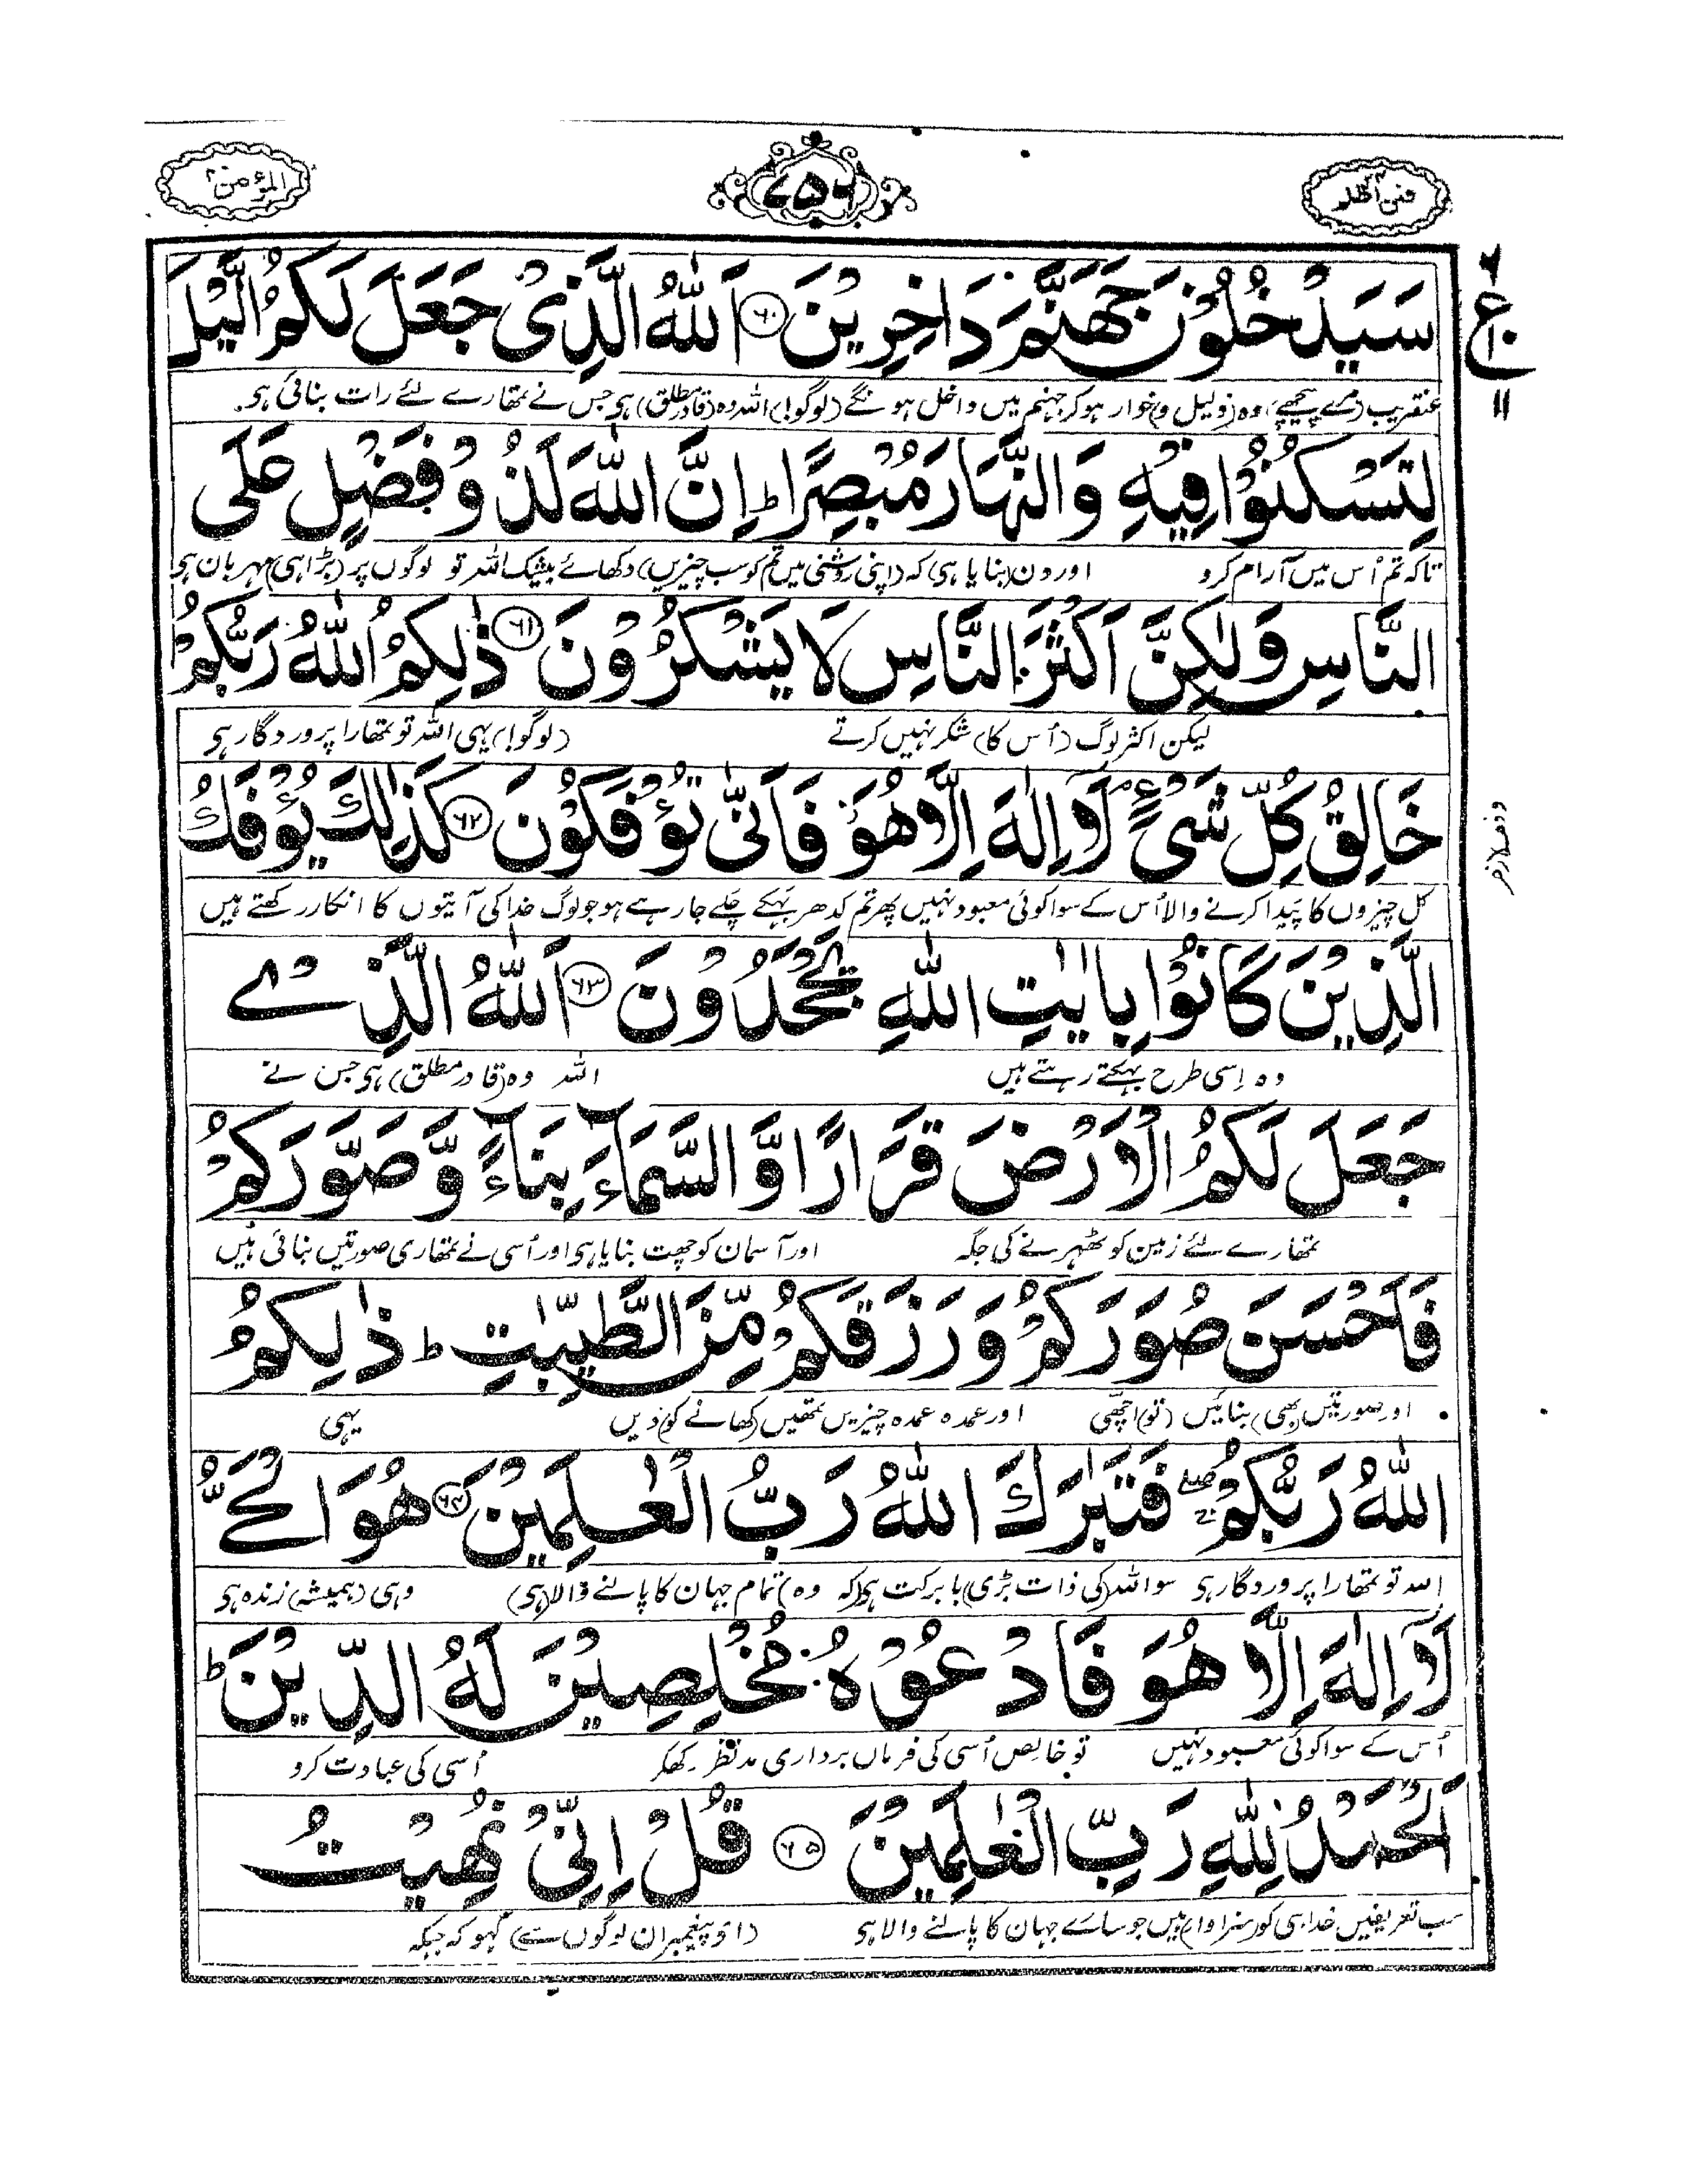 فمن اظلم ۲۴
۷۵۶
المؤمن ۴۰
سَيَدْخُلُوْنَ جَهَنَّمَ دَاخِرِيْنَ ﴿۶۰﴾ اَللّٰهُ الَّذِىْ جَعَلَ لَكُمُ الَّيْلَ
عنقریب (مرے پیچھے) وہ (ذلیل و) خوار ہوکر جہنم میں داخل ہونگے (لوگو!) اللہ وہ (قادر مطلق) ہی جس نے تمھارے لئے رات بنائی ہی۔
لِتَسْكُنُوْا فِيْهِ وَالنَّهَارَ مُبْصِرًا ؕ اِنَّ اللّٰهَ لَذُوْ فَضْلٍ عَلَى
تاکہ تم اُس میں آرام کرو اور دن (بنایا ہی) کہ (اپنی روشنی میں تم کو سب چیزیں) دکھائے بیشک اللہ تو لوگوں پر (بڑا ہی) مہربان ہی
النَّاسِ وَلٰكِنَّ اَكْثَرَ النَّاسِ لَا يَشْكُرُوْنَ ﴿۶۱﴾ ذٰلِكُمُ اللّٰهُ رَبُّكُمْ
لیکن اکثر لوگ (اُس کا) شکر نہیں کرتے (لوگو!) یہی اللہ تو تمھارا پروردگار ہی
خَالِقُ كُلِّ شَىْءٍ ۘ لَاۤ اِلٰهَ اِلَّا هُوَ فَاَنّٰى تُؤْفَكُوْنَ ﴿۶۲﴾ كَذٰلِكَ يُؤْفَكُ
کل چیزوں کا پَیدا کرنے والا اُس کے سوا کوئی معبود نہیں پھر تم کدھر بہکے چلے جا رہے ہو جو لوگ خدا کی آیتوں کا انکار رکھتے ہیں
الَّذِيْنَ كَانُوْا بِاٰيٰتِ اللّٰهِ يَجْحَدُوْنَ ﴿۶۳﴾ اَللّٰهُ الَّذِىْ
وہ اِسی طرح بہکتے رہتے ہیں اللہ وہ (قادر مطلق) ہی جس نے
جَعَلَ لَكُمُ الْاَرْضَ قَرَارًا وَّالسَّمَآءَ بِنَآءً وَّصَوَّرَكُمْ
تمھارے لئے زمین کو ٹھہرنے کی جگہ اور آسمان کو چھت بنایا ہی اور اُسی نے تمھاری صورتیں بنائی ہیں
فَاَحْسَنَ صُوَرَكُمْ وَرَزَقَكُمْ مِّنَ الطَّيِّبٰتِ ؕ ذٰلِكُمُ
اور صورتیں (بھی) بنائیں (تو) اچھّی اور عمدہ عمدہ چیزیں تمھیں (کھانے کو) دیں یہی
اللّٰهُ رَبُّكُمْ ۖۚ فَتَبٰرَكَ اللّٰهُ رَبُّ الْعٰلَمِيْنَ ﴿۶۴﴾ هُوَ الْحَىُّ
اللہ تو تمھارا پروردگار ہی سو اللہ (کی ذات بڑی) با برکت ہی (کہ وہ) تمام جہان کا پالنے والا (ہی) وہی (ہمیشہ) زندہ ہی
لَاۤ اِلٰهَ اِلَّا هُوَ فَادْعُوْهُ مُخْلِصِيْنَ لَهُ الدِّيْنَ ؕ
اُس کے سوا کوئی معبود نہیں تو خالص اُسی کی فرماں برداری مدنظر رکھکر اُسی کی عبادت کرو
اَلْحَمْدُ لِلّٰهِ رَبِّ الْعٰلَمِيْنَ ﴿۶۵﴾ قُلْ اِنِّىْ نُهِيْتُ
سب تعریفیں خدا ہی کو (سزاوار) ہیں جو سارے جہان کا پالنے والا ہی (او پیغمبر ان لوگوں سے) کہو کہ جبکہ
۶
ع
۱۰
۱۱
وقف لازم